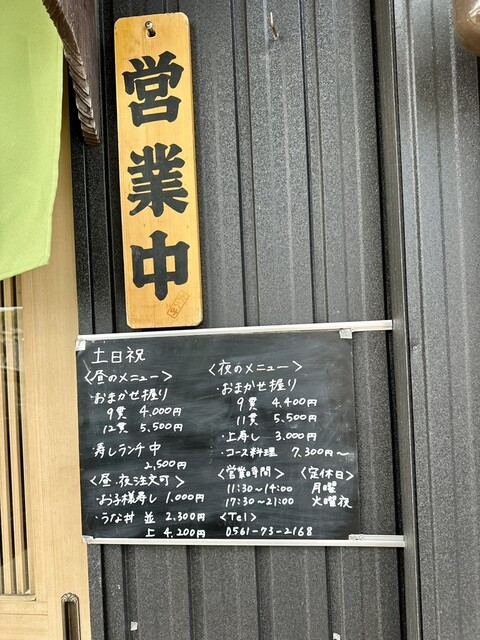 営業中
土日祝
〈昼のメニュー〉
・おまかせ握り
9貫 4,000円
12貫 5,500円
・寿しランチ 中
2,500円
〈昼・夜注文可〉
・お子様寿し 1,000円
・うな丼 並 2,300円
上 4,200円
〈夜のメニュー〉
おまかせ握り
9貫 4,400円
11貫 5,500円
・上寿し 3,000円
・コース料理 7,300円〜
〈営業時間〉
11:30〜14:00
17:30〜21:00
〈定休日〉
月曜
火曜夜
〈Tel〉
0561-73-2168